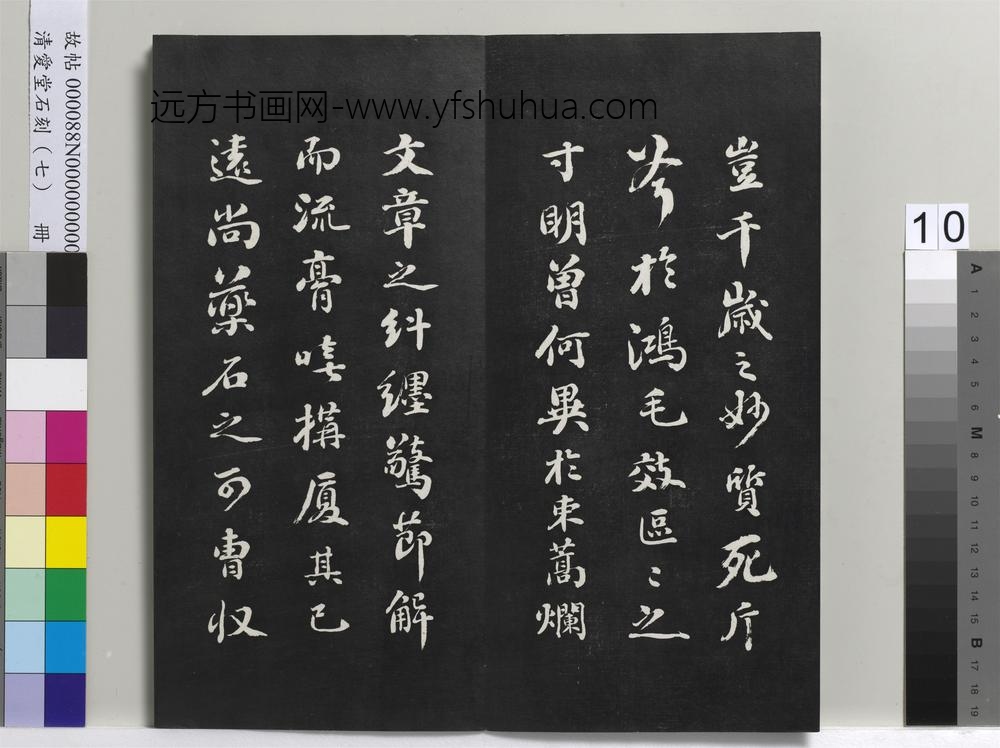 远方书画网-www.yfshuhua.com
豈千歲之妙質死斤
斧於鴻毛效區〻之
寸明曾何異於束蒿爛
文章之糾纏驚節解
而流膏嗟搆厦其已
遠尚藥石之可曹收
故帖 000088N000000000
清愛堂石刻（七） 冊
10
A 1 2 3 4 5 6 M 8 9 10 11 12 13 14 15 B 17 18 19